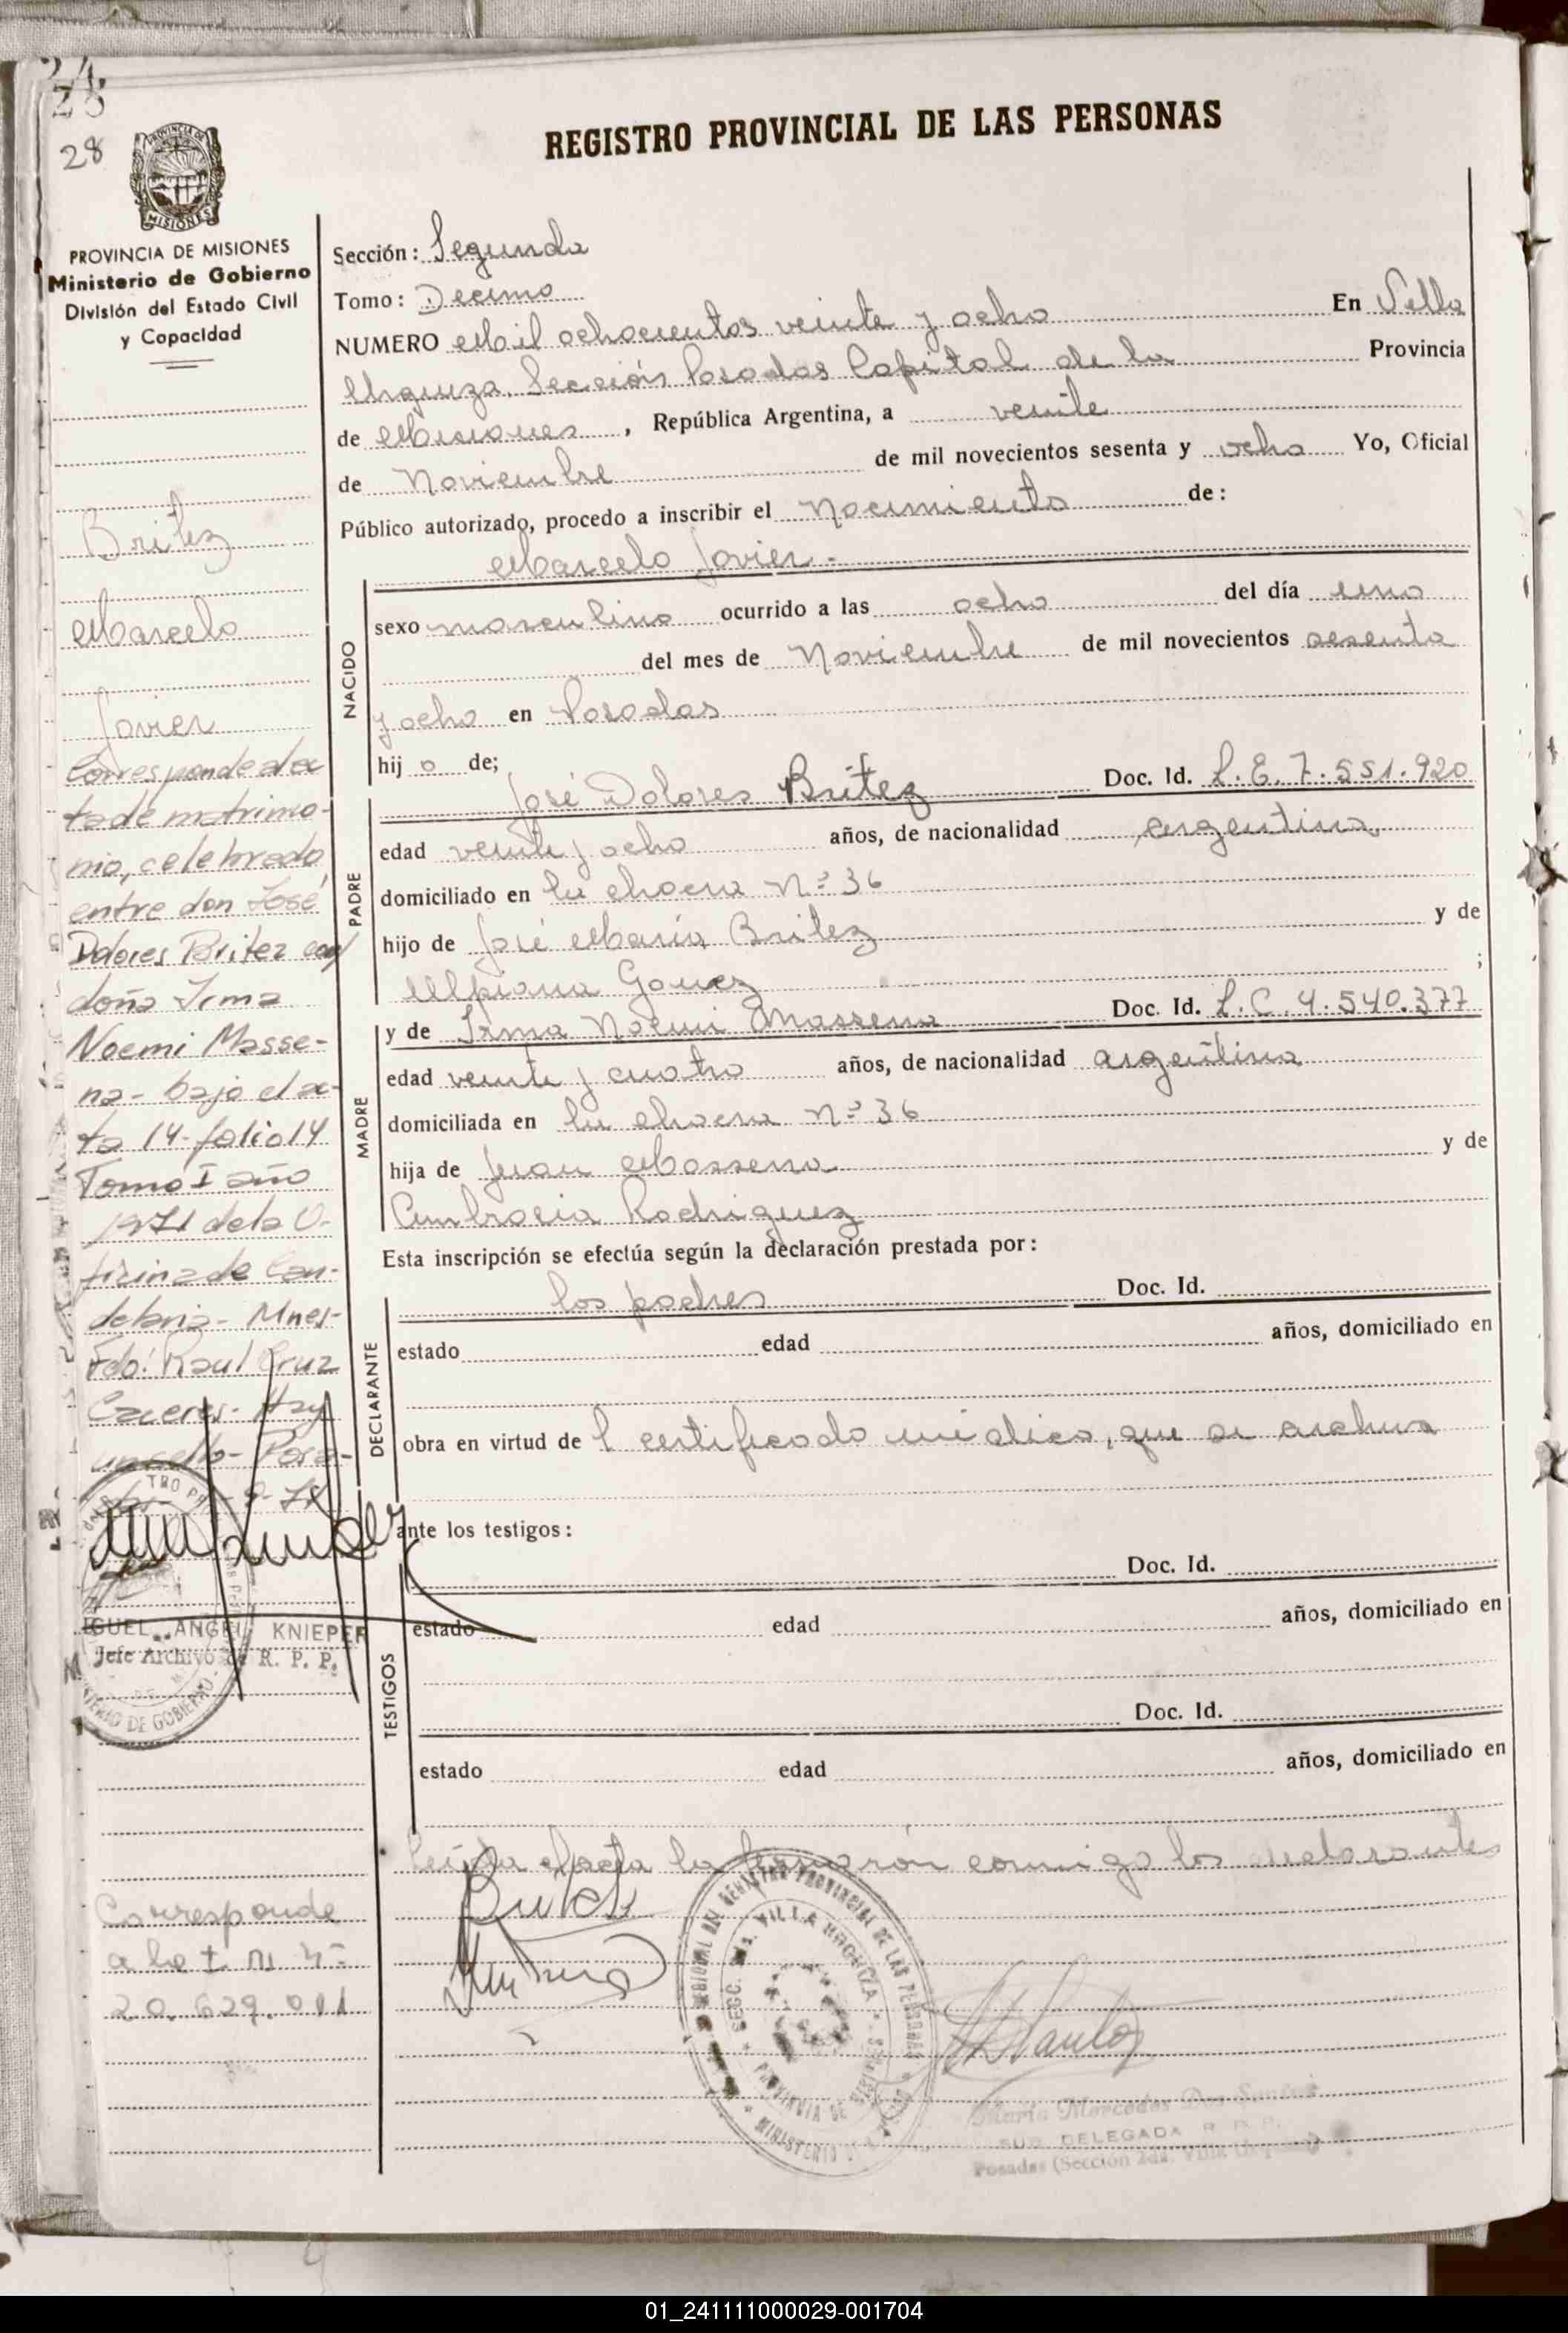 28
REGISTRO PROVINCIAL DE LAS PERSONAS
PROVINCIA DE MISIONES
Ministerio de Gobierno
División del Estado Civil
y Capacidad
Britez
Marcelo
Javier
Corresponde al ac
ta de matrimo-
nio, celebrado
entre don José
Dolores Britez con
doña Irma
Noemi Masse-
na - bajo el ac-
ta 14 - folio 14
Tomo I año
1971 de la O-
ficina de Can-
delaria - Mnes -
Fdo: Raul Cruz
Caceres - Hay
un sello - Posa-
IGUEL ANGEL KNIEPER
Jefe Archivo de R. P. P.
Corresponde
20.629.011
Sección: Segunda
Tomo: Decimo
NUMERO Mil ochocientos veinte y ocho En Villa
Urquiza, Sección Posadas Capital de la Provincia
de Misiones, República Argentina, a veinte
de Noviembre de mil novecientos sesenta y ocho Yo, Oficial
Público autorizado, procedo a inscribir el Nacimiento de:
Marcelo Javier.-
NACIDO
sexo masculino ocurrido a las ocho del día uno
del mes de Noviembre de mil novecientos sesenta
y ocho en Posadas
hij o de;
PADRE
José Dolores Britez Doc. Id. L.E. 7.551.920
edad veinte y ocho años, de nacionalidad argentina
domiciliado en la chacra Nº 36
hijo de José María Britez y de
Ulpiana Gomez ;
MADRE
y de Irma Noemi Massena Doc. Id. L.C. 4.540.377
edad veinte y cuatro años, de nacionalidad argentina
domiciliada en la chacra Nº 36
hija de Juan Massena y de
Ambrocia Rodriguez
Esta inscripción se efectúa según la declaración prestada por:
DECLARANTE
los padres Doc. Id.
estado edad años, domiciliado en
obra en virtud de l certificado médico, que se archiva
ante los testigos:
TESTIGOS
Doc. Id.
estado edad años, domiciliado en
Doc. Id.
estado edad años, domiciliado en
Leída el acta la firmaron conmigo los declarantes
María Mercedes Dos Santos
SUB DELEGADA R. P. P.
Posadas (Sección 2da. Villa Urquiza)
01_241111000029-001704